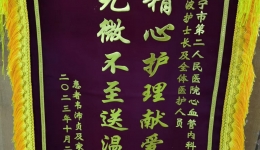 宁市第二人民医院心血管内科
护士长及全体医护人员
精心护理献爱
无微不至送温
患者韦沛贞及家
二〇二三年十月二